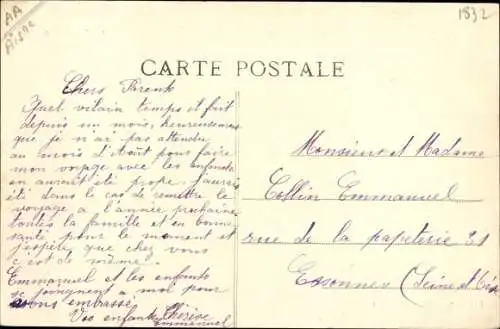 AA
Aisne
1832
CARTE POSTALE
Chers Parents
Quel vilain temps et fait
depuis un mois, heureusement
que je n'ai pas attendu
au mois d'Août pour faire
mon voyage avec les enfants
on aurait été propre j'aurais
été dans le cas de remettre le
voyage à l'année prochaine
toutes la famille et en bonne
santé pour le moment et
j'espère que chez vous
c'est de même.
Emmanuel et les enfants
se joingnent a moi pour
vous embrassé
Vos enfants Thérèse
Emmanuel
Monsieur et Madame
Collin Emmanuel
rue de la papeterie 31
Essonnes (Seine et Oise